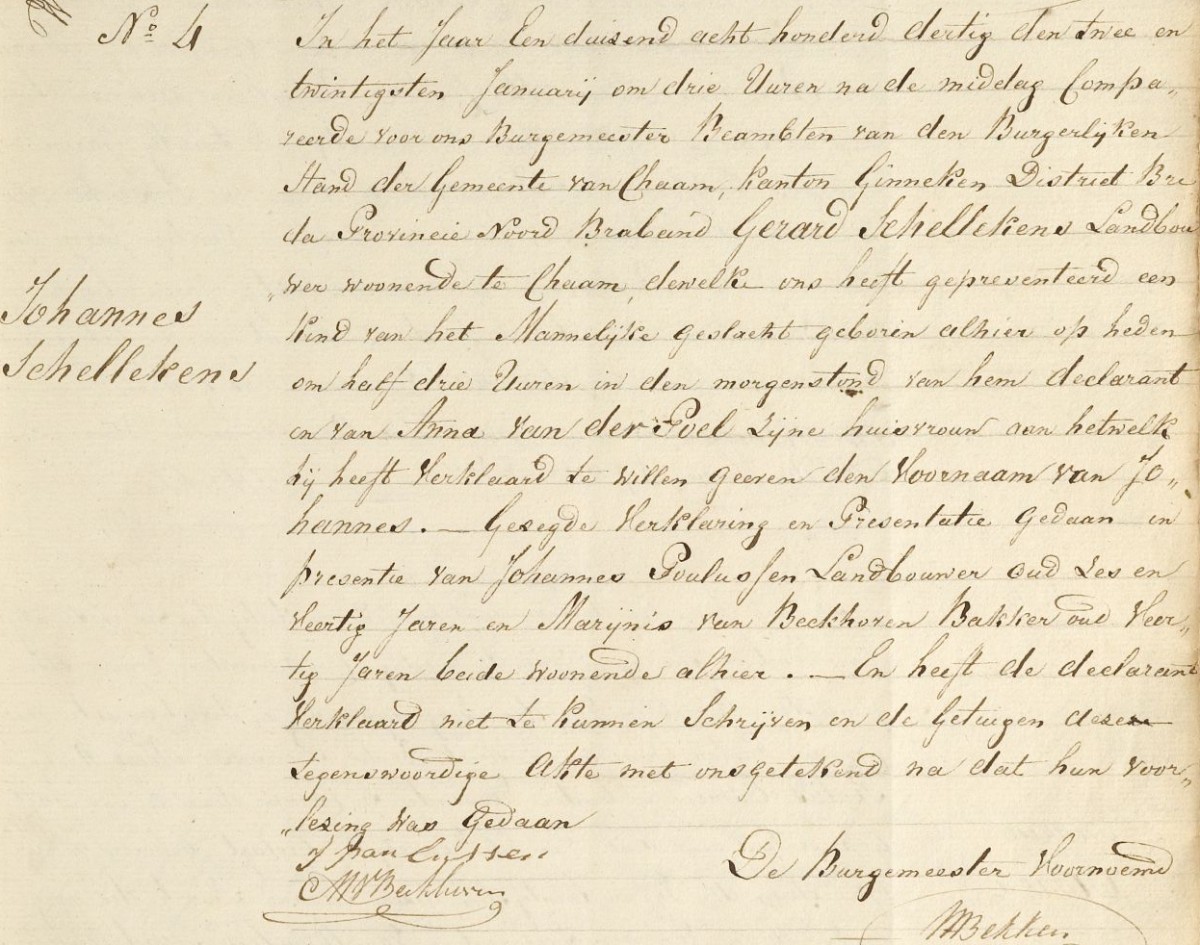 No 4
In het Jaar Een duizend acht honderd dertig den twee en
twintigsten Januarij om drie Uuren na de middag Compa„
reerde voor ons Burgemeester Beambten van den Burgerlijken
Stand der Gemeente van Chaam, kanton Ginneken District Bre
da Provincie Noord Braband Gerard Schellekens Landbou
„wer woonende te Chaam, dewelke ons heeft gepreventeerd een
Johannes
Schellekens
kind van het Mannelijke geslacht geboren alhier op heden
om half drie Uuren in den morgenstond van hem declarant
en van Anna van der Poel Zijne huisvrouw aan hetwelk
hij heeft Verklaard te willen geeven den Voornaam van Jo„
hannes. — Gezegde Verklaring en Presentatie Gedaan in
presentie van Johannes Poulussen Landbouwer oud Zes en
Veertig Jaren en Marijnis van Beckhoven Bakker oud Veer„
tig Jaren beide woonende alhier. — En heeft de declarant
Verklaard niet te kunnen Schrijven en de Getuigen deze
tegenswoordige Akte met ons getekend na dat hun voor„
„lezing was Gedaan
J paulussen
MVBeckhoven
De Burgemeester Voornoemd